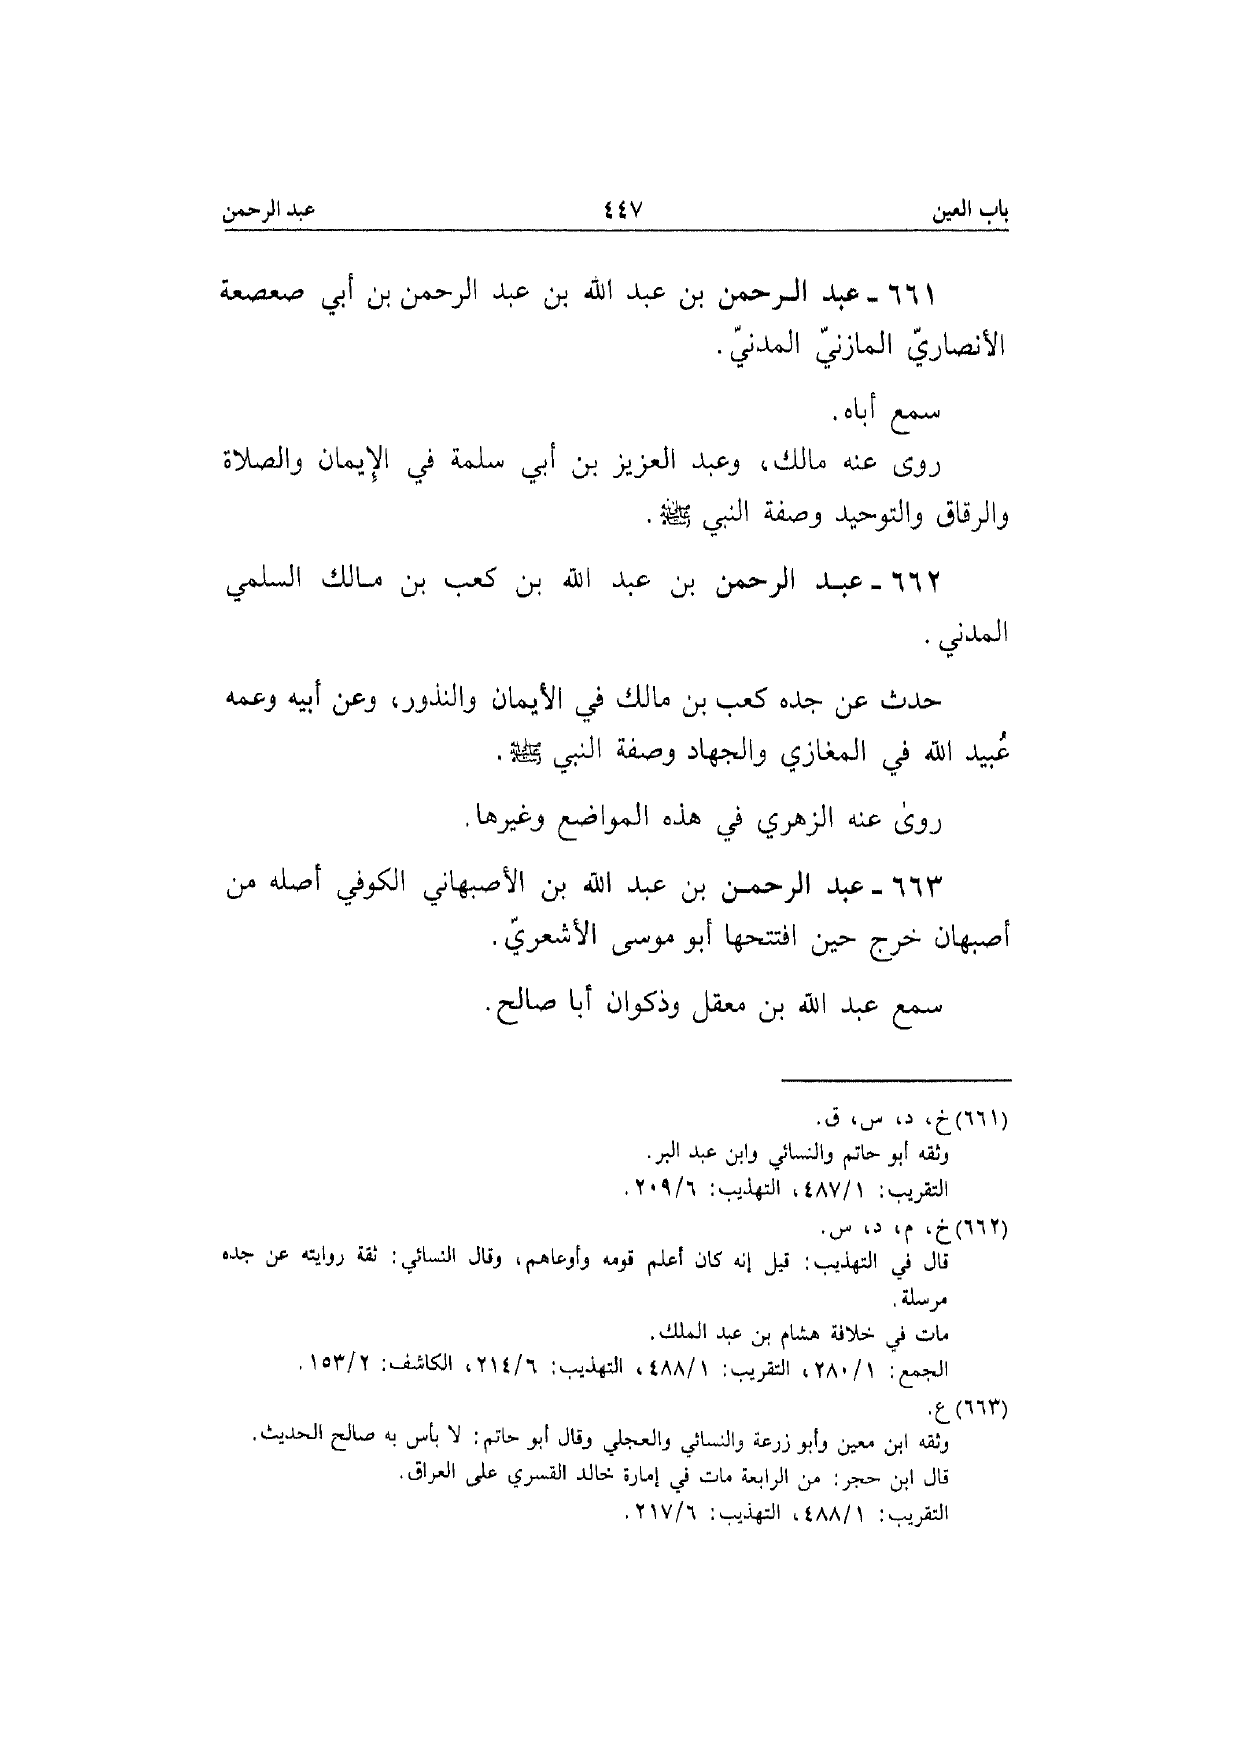 باب العين ٤٤٧ عبد الرحمن
٦٦١ - عبد الرحمن بن عبد الله بن عبد الرحمن بن أبي صعصعة
الأنصاريّ المازنيّ المدنيّ.
سمع أباه.
روى عنه مالك، وعبد العزيز بن أبي سلمة في الإيمان والصلاة
والرقاق والتوحيد وصفة النبي ﷺ.
٦٦٢ - عبد الرحمن بن عبد الله بن كعب بن مالك السلمي
المدني.
حدث عن جده كعب بن مالك في الأيمان والنذور، وعن أبيه وعمه
عُبيد الله في المغازي والجهاد وصفة النبي ﷺ.
روىٰ عنه الزهري في هذه المواضع وغيرها.
٦٦٣ - عبد الرحمن بن عبد الله بن الأصبهاني الكوفي أصله من
أصبهان خرج حين افتتحها أبو موسى الأشعريّ.
سمع عبد الله بن معقل وذكوان أبا صالح.
(٦٦١) خ، د، س، ق.
وثقه أبو حاتم والنسائي وابن عبد البر.
التقريب: ٤٨٧/١، التهذيب: ٢٠٩/٦.
(٦٦٢) خ، م، د، س.
قال في التهذيب: قيل إنه كان أعلم قومه وأوعاهم، وقال النسائي: ثقة روايته عن جده
مرسلة.
مات في خلافة هشام بن عبد الملك.
الجمع: ٢٨٠/١، التقريب: ٤٨٨/١، التهذيب: ٢١٤/٦، الكاشف: ١٥٣/٢.
(٦٦٣) ع.
وثقه ابن معين وأبو زرعة والنسائي والعجلي وقال أبو حاتم: لا بأس به صالح الحديث.
قال ابن حجر: من الرابعة مات في إمارة خالد القسري على العراق.
التقريب: ٤٨٨/١، التهذيب: ٢١٧/٦.